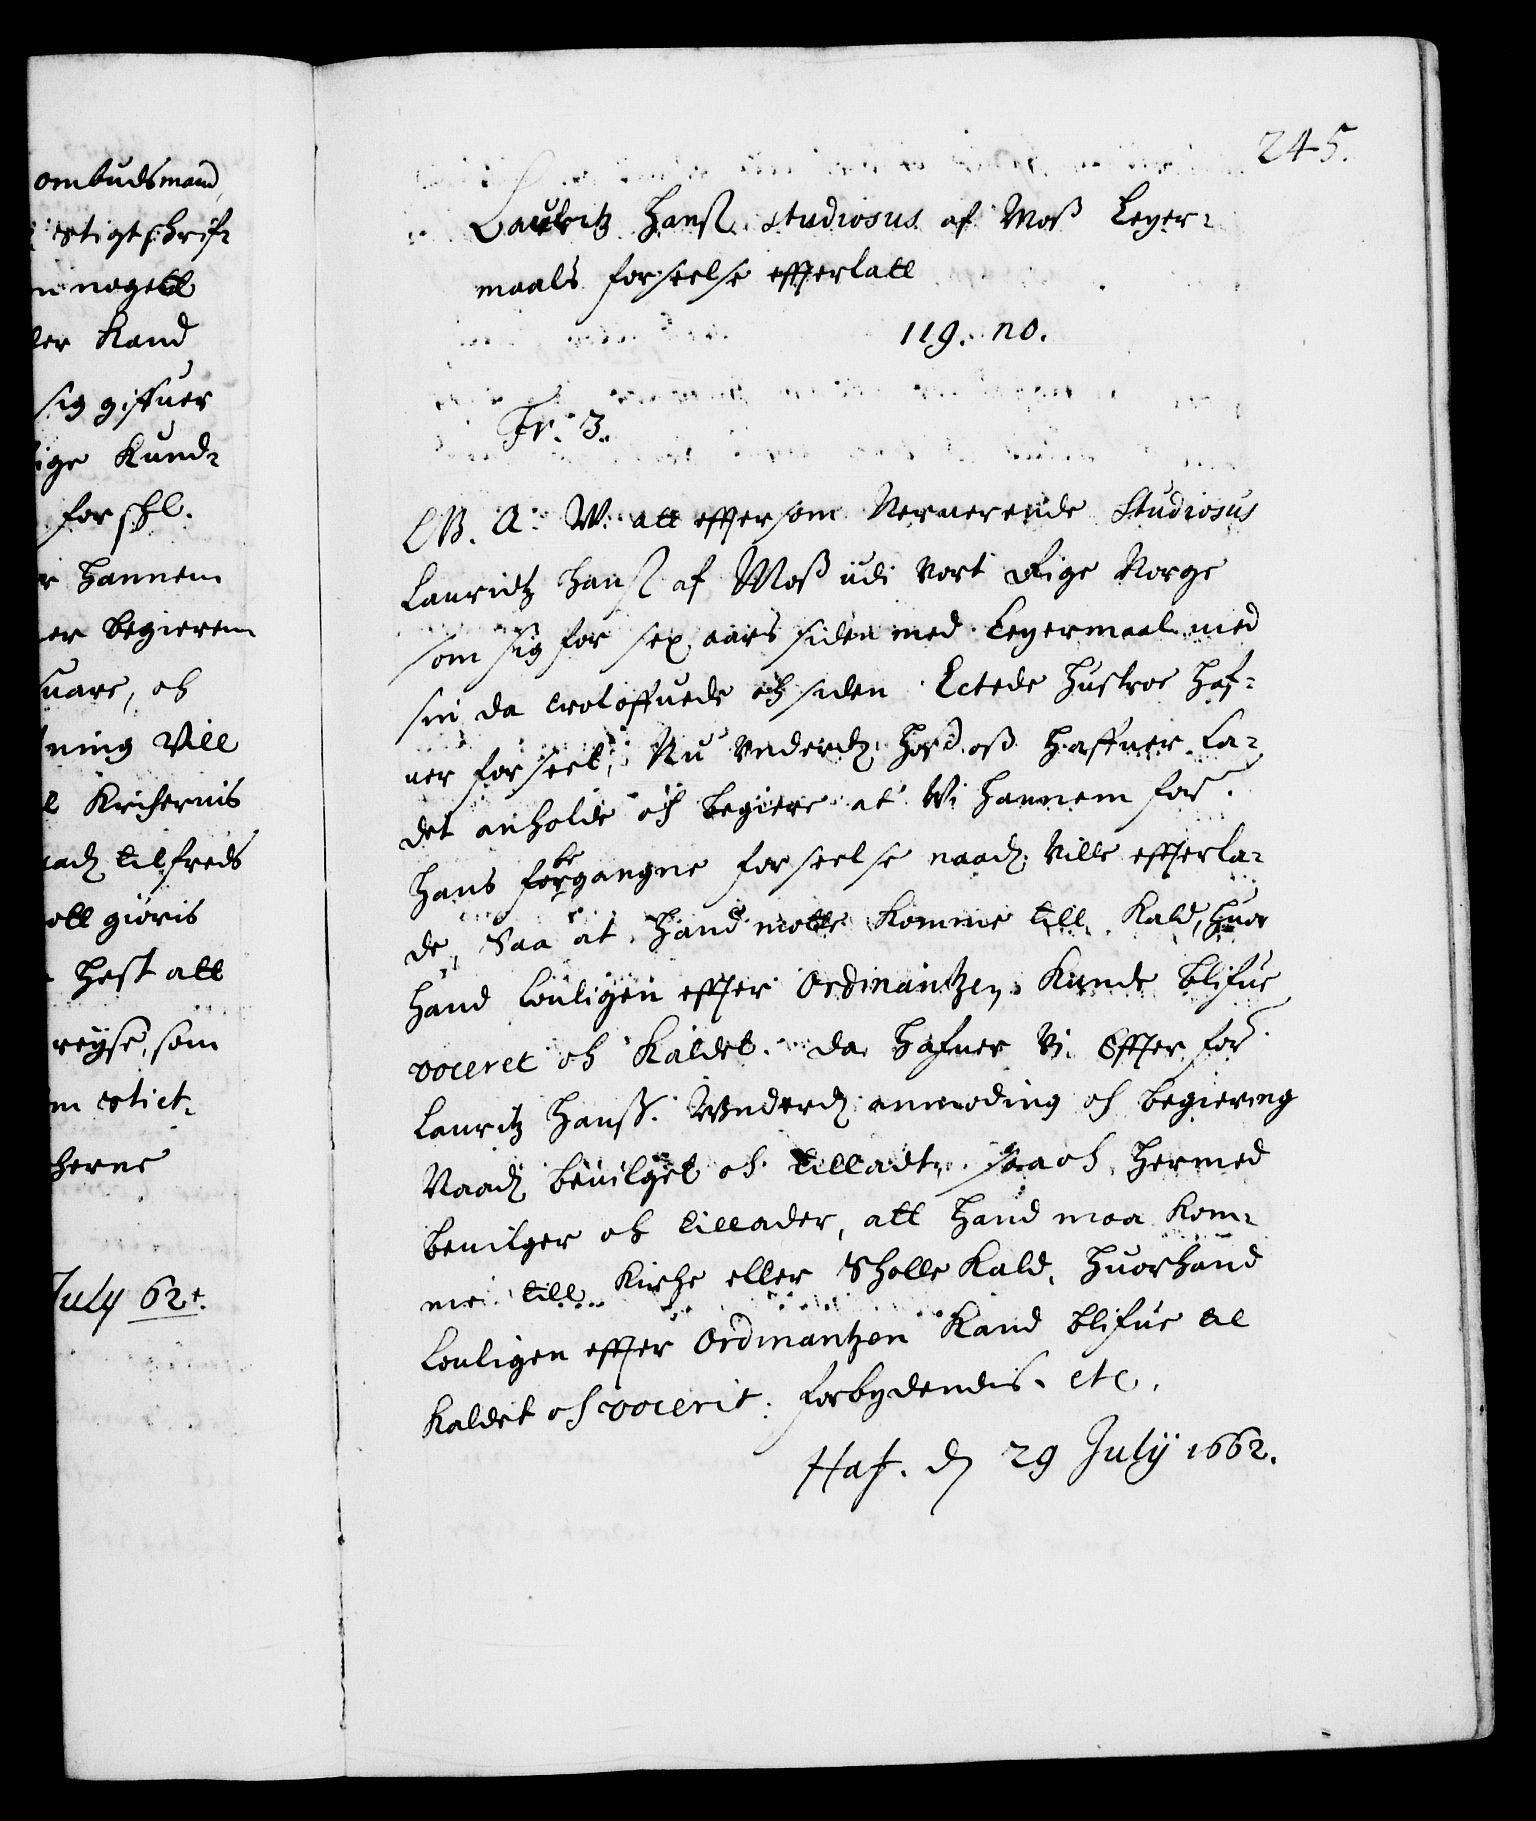 245.
ombudsmand,
stigtschrif-
nogett
Kand
sig giffuer
ige Kund-
for schl.
hannem
er begierem
suare, och
ning Vill
Kricheruis
naadi tilfreds
ott giöris
hest att
reÿse, som
m stict-
herne
July 62.
Lauritz Hanß. studiosus af Moß Leger-
maals forseelse efterlatt
119. no.
Fr. 3.
G. A. W. att effter som Nerverende Studiosus
Lauridtz Hanß af Moß udi vort Rige Norge
som sig for sex aars siden med Legermaal med
sin da troloffuede och siden Ectede Hustroe haf-
uer forseet, Nu Underd: hoes oß haffuer la-
det anholde och begiere at Vi hannem for
hans forbegangne forseelse naad: ville efterla-
de, Saa at hand motte komme till Kald, huor
hand louligen effter Ordinantzen kunde blifue
voceret och kaldet. da hafuer Vi Effter for:
Lauritz Hanß. Underd: anmoding och begiering
Naad: beuilget och tilladt, saa och hermed
beuilger och tillader, att hand maa kom-
me till Kirche eller Scholle Kald, huorhand
louligen effter Ordinantzen kand blifue til
kaldet och vocerit: forbydendis. etc.
Haf. d. 29 Julÿ 1662.